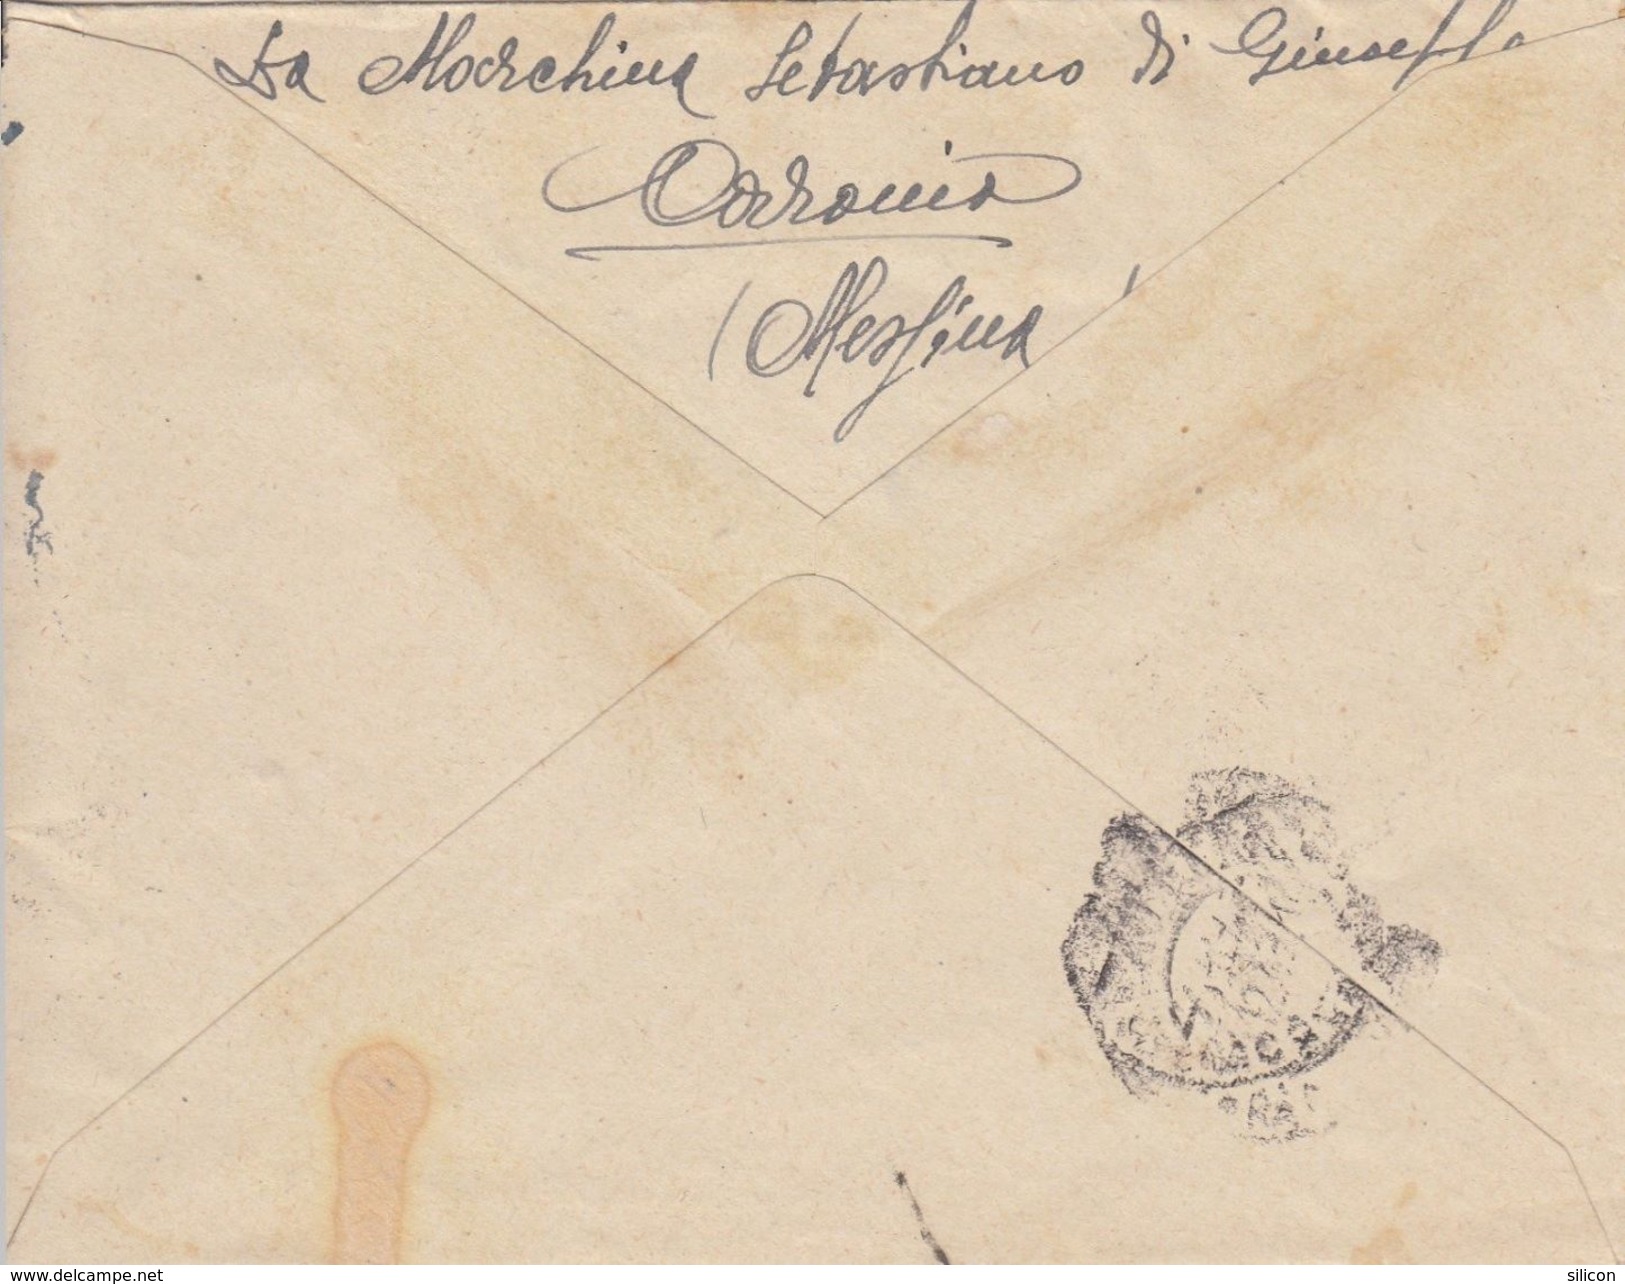 La Marchina Sebastiano di Giuseppe
Caronia
(Messina)
www.delcampe.net
silicon